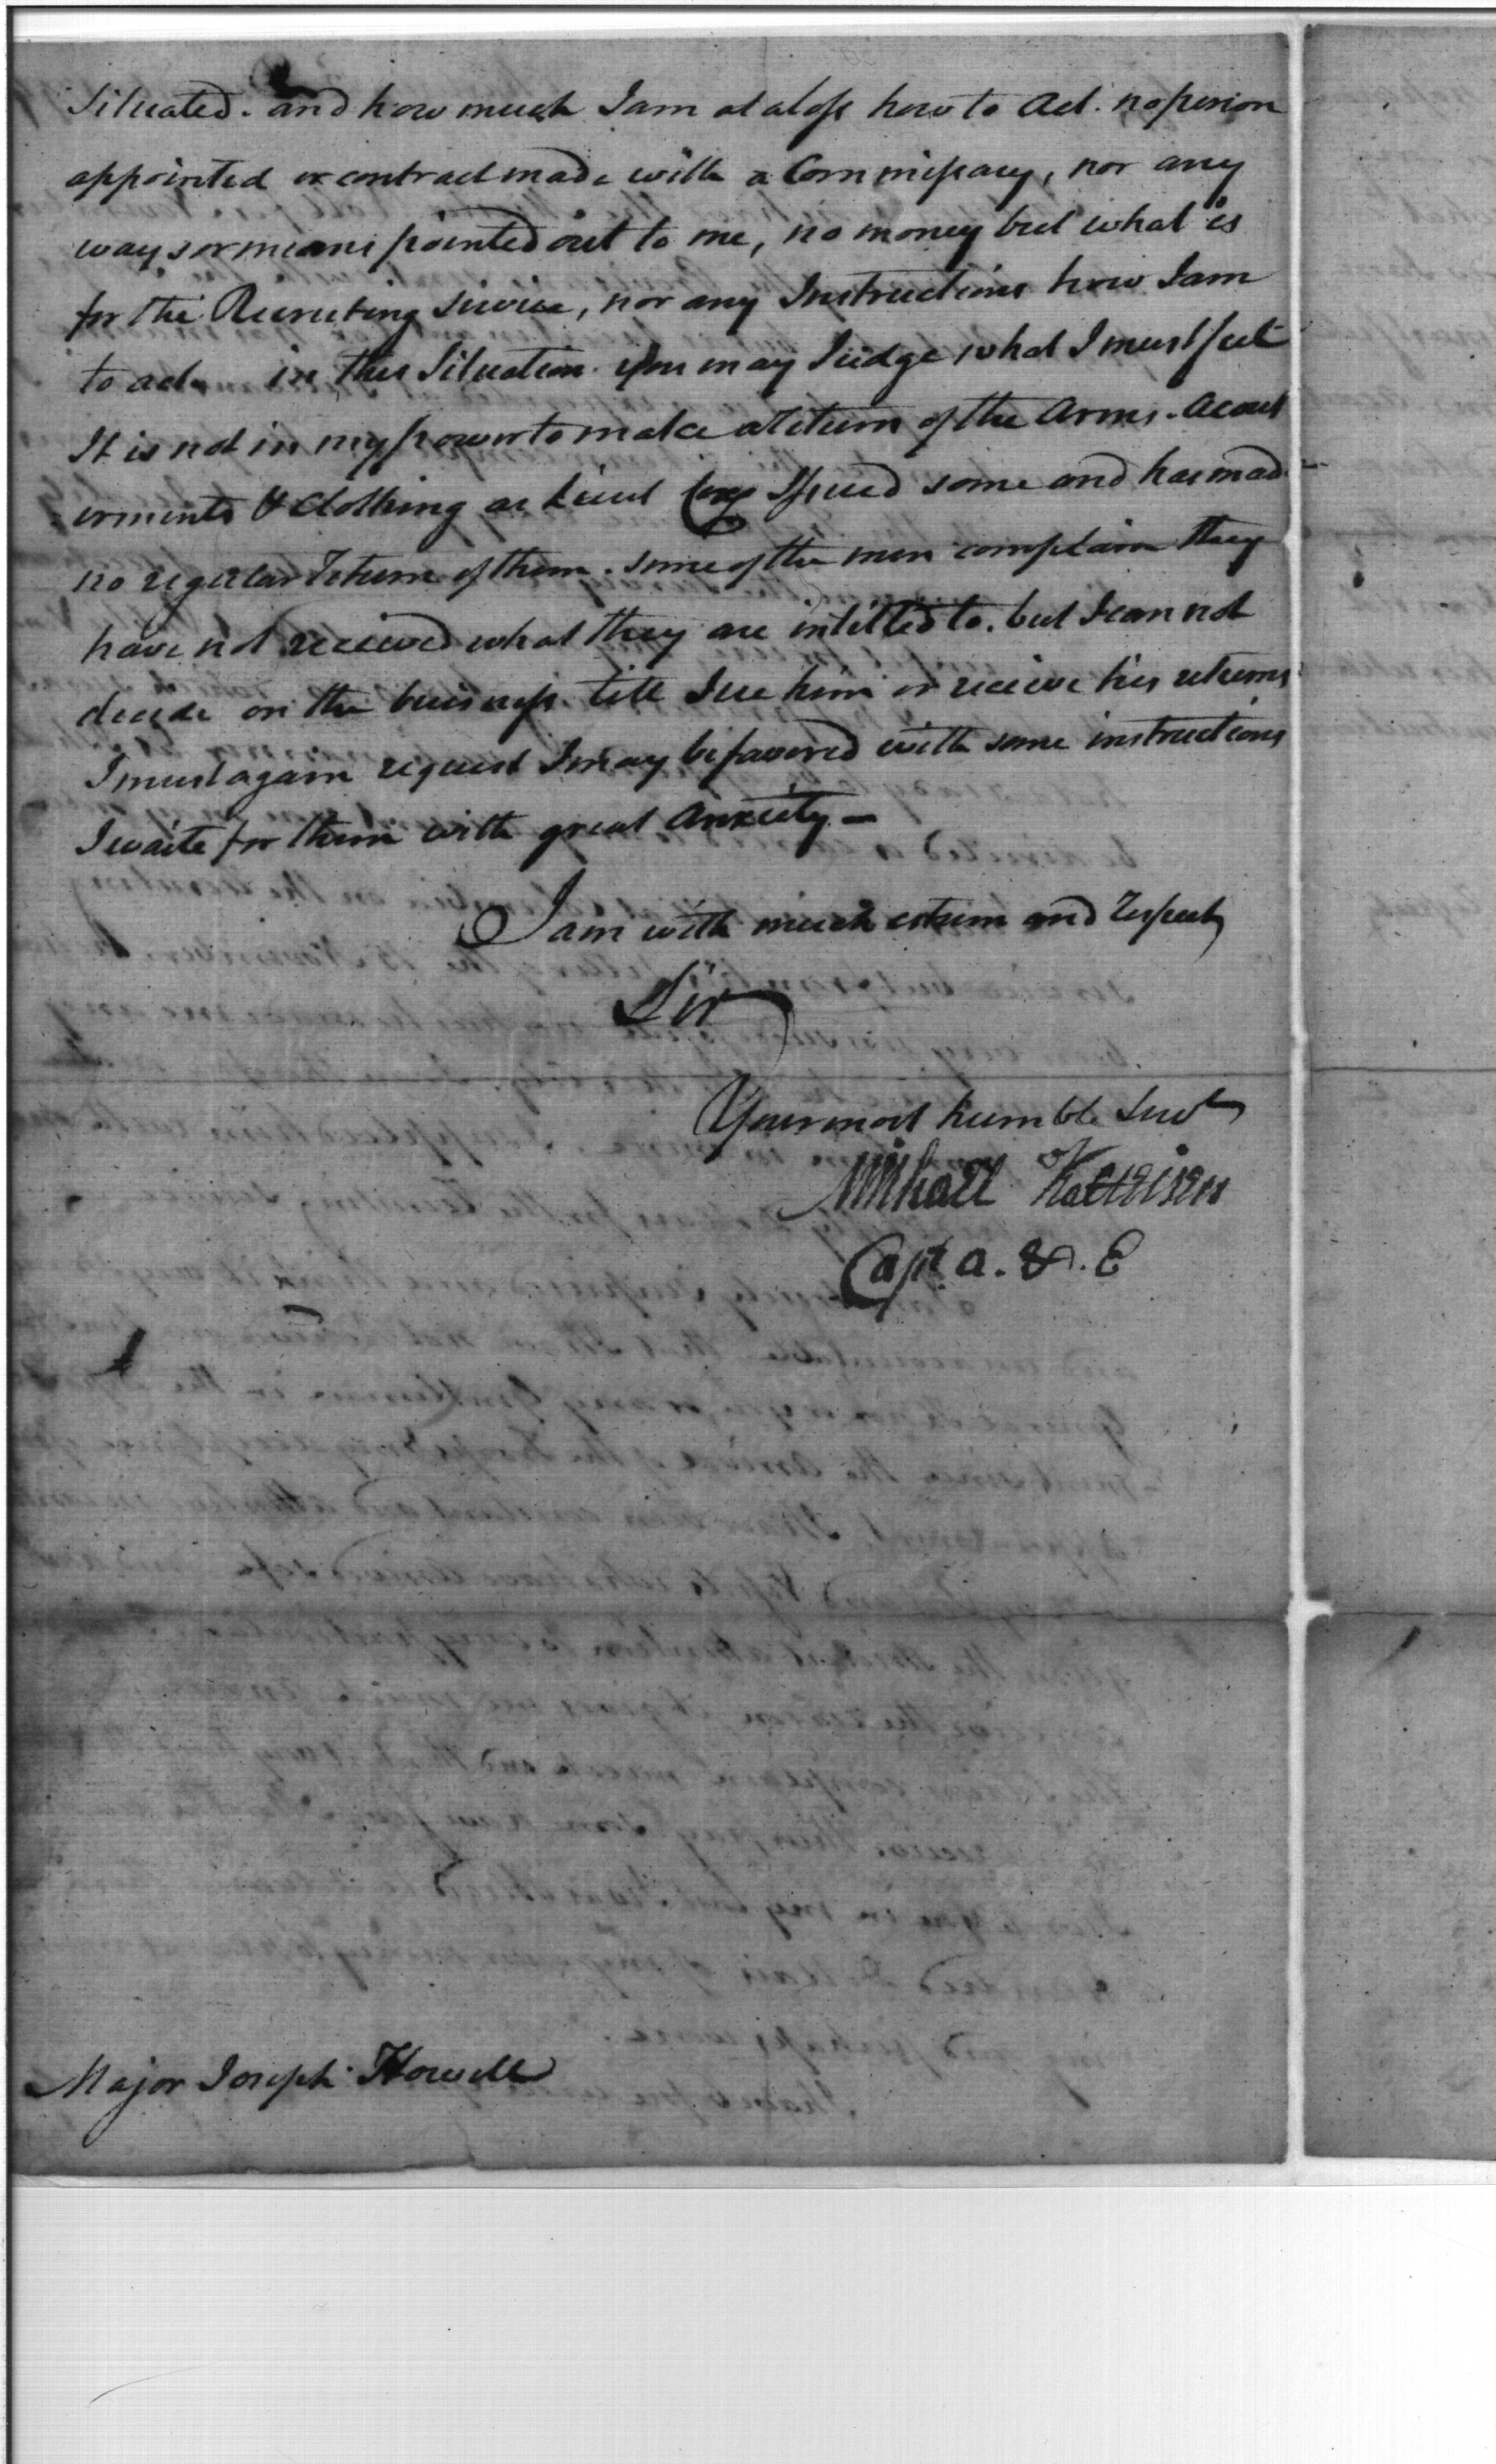 Situated. and how much I am at a loss how to Act. no person
appointed or contract made with a Commissary, nor any
ways or means pointed out to me, no money but what is
for the Recruiting Service, nor any Instructions how I am
to act. in this Situation you may Judge what I must feel
It is not in my power to make a Return of the Arms. Acout
erments & Clothing as Lieut Issued some and has made
no regular Return of them. some of the men complain they
have not received what they are intitled to. but I can not
decide on the business till I see him or receive his returns
I must again request I may be favored with some instructions
I waite for them with great Anxiety —
I am with much esteem and Respect
Sir
Your most humble Servt
Michael Kalteisen
Capt. A. & E
Major Joseph Howell